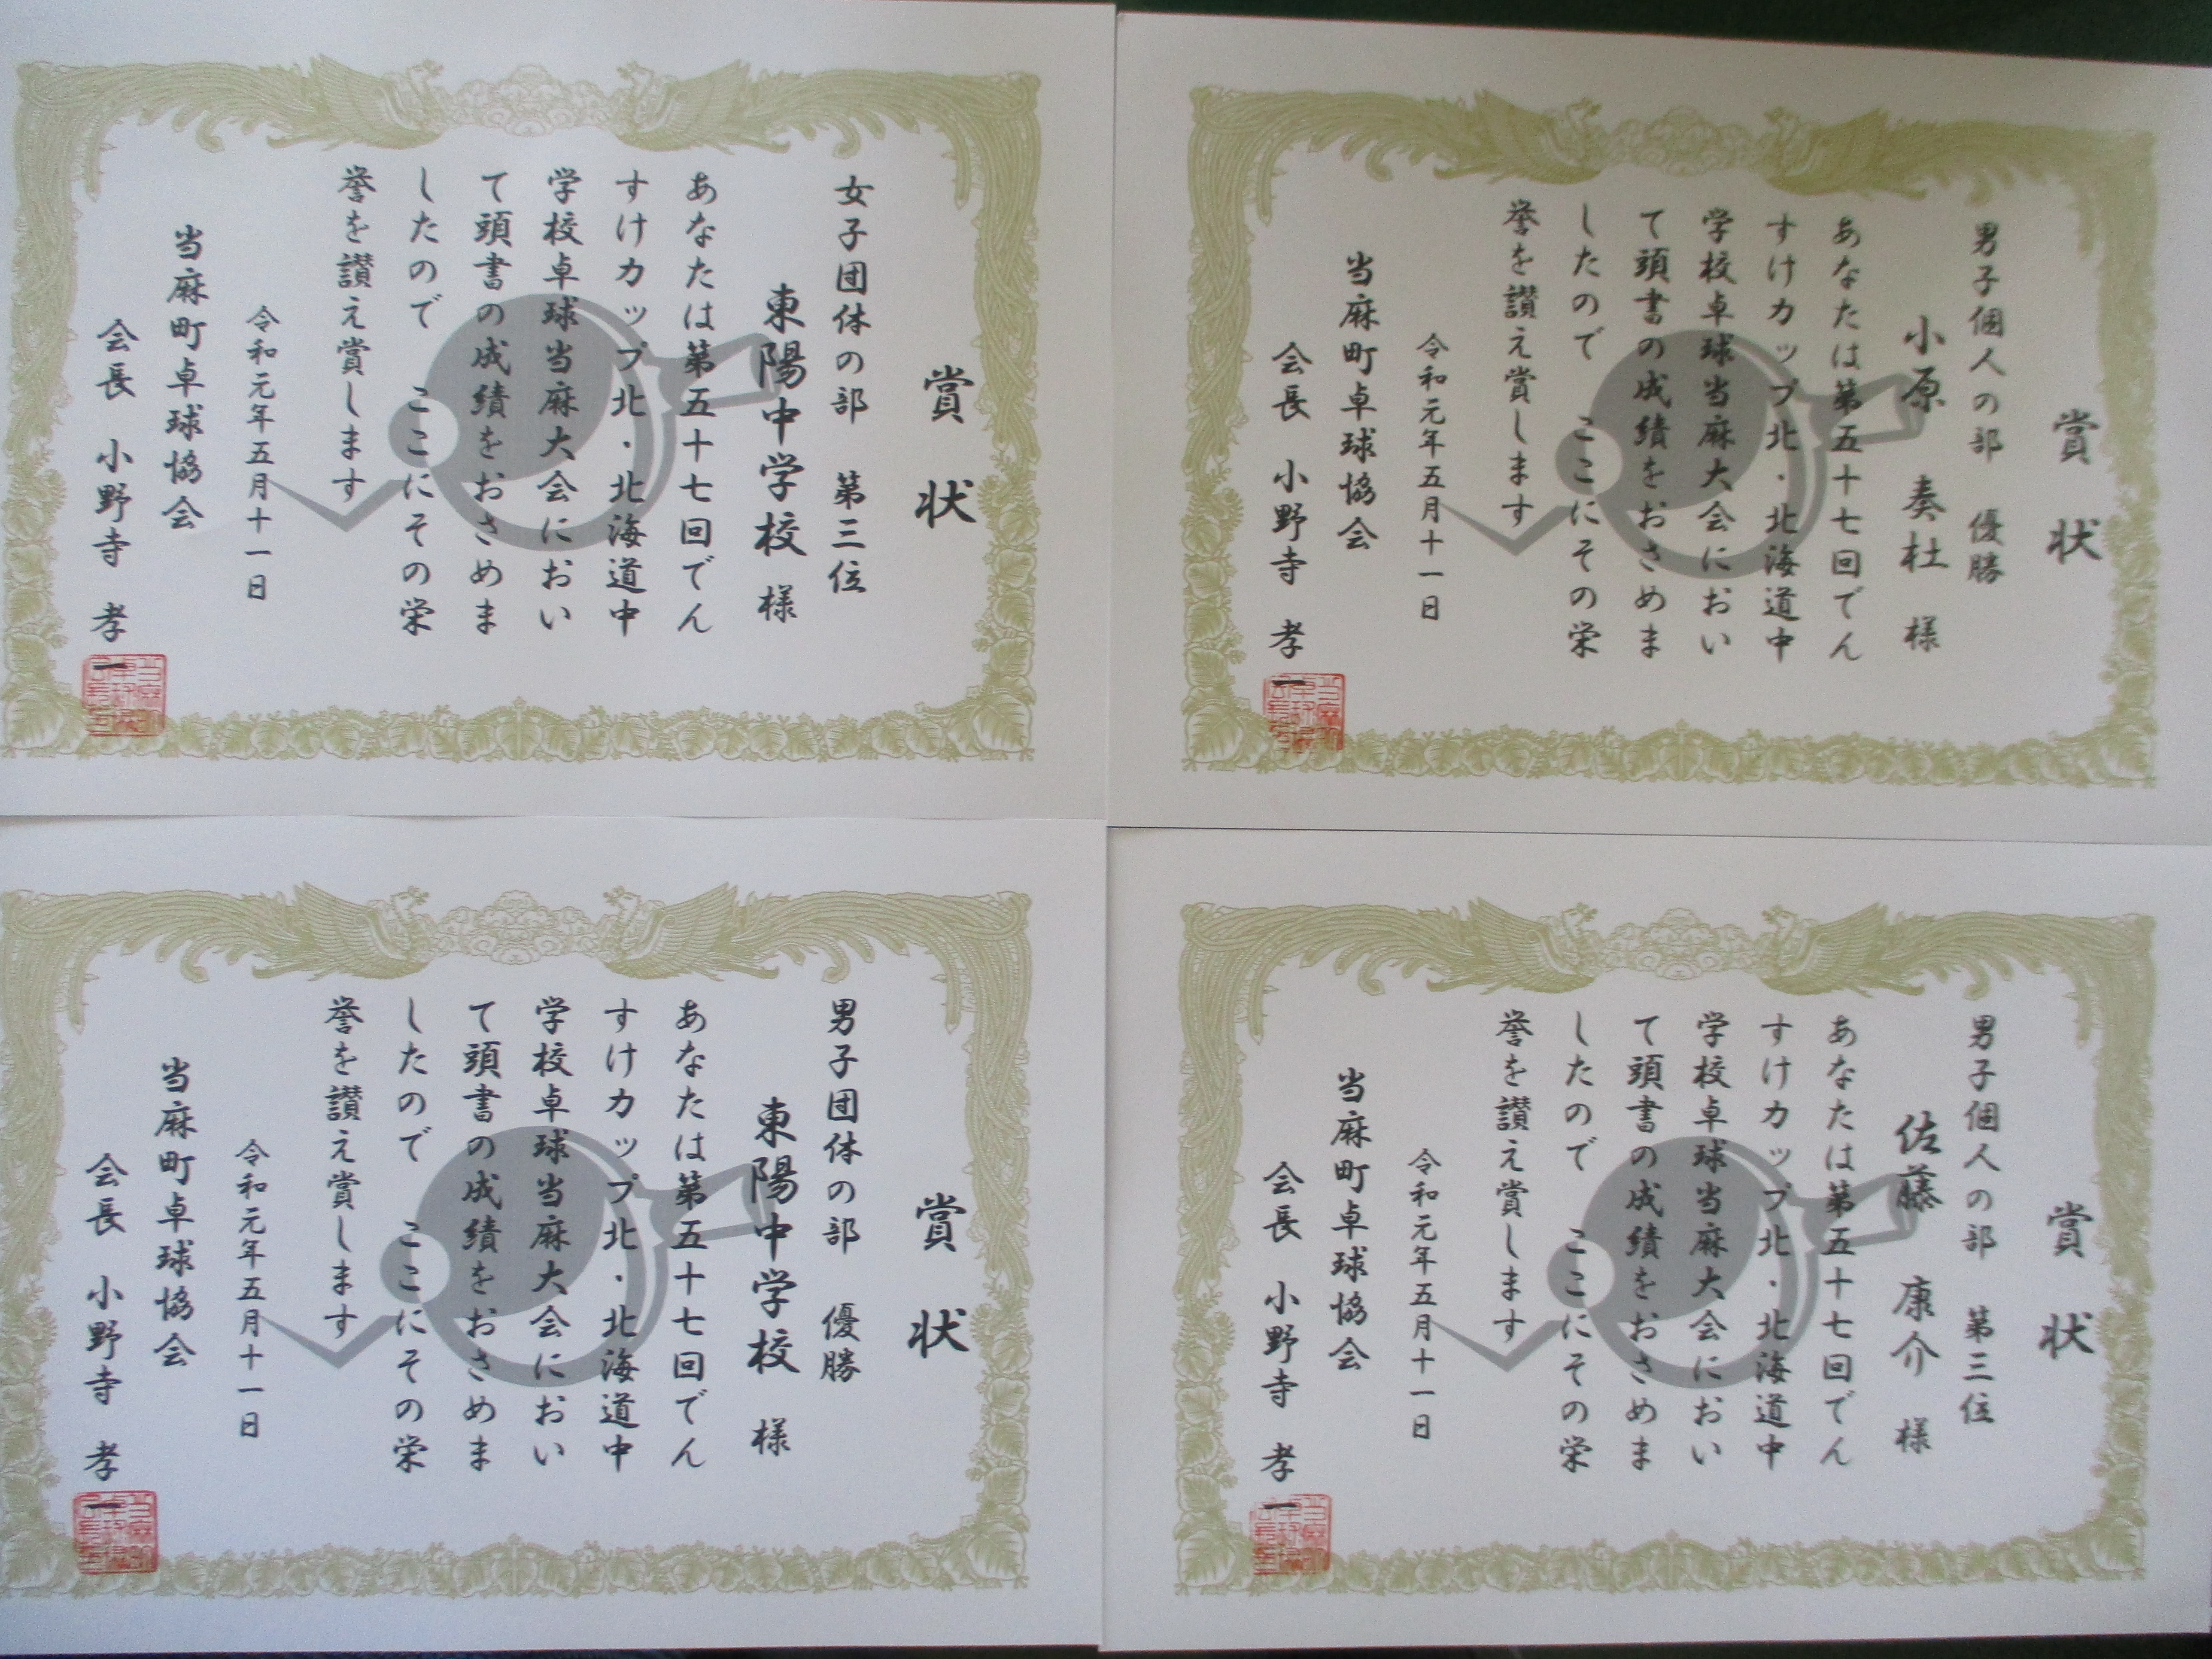 賞状
女子団体の部 第三位
東陽中学校 様
あなたは第五十七回でん
すけカップ北・北海道中
学校卓球当麻大会におい
て頭書の成績をおさめま
したので ここにその栄
誉を讃え賞します
令和元年五月十一日
当麻町卓球協会
会長 小野寺 孝一
賞状
男子個人の部 優勝
小原 奏杜 様
あなたは第五十七回でん
すけカップ北・北海道中
学校卓球当麻大会におい
て頭書の成績をおさめま
したので ここにその栄
誉を讃え賞します
令和元年五月十一日
当麻町卓球協会
会長 小野寺 孝一
賞状
男子団体の部 優勝
東陽中学校 様
あなたは第五十七回でん
すけカップ北・北海道中
学校卓球当麻大会におい
て頭書の成績をおさめま
したので ここにその栄
誉を讃え賞します
令和元年五月十一日
当麻町卓球協会
会長 小野寺 孝一
賞状
男子個人の部 第三位
佐藤 康介 様
あなたは第五十七回でん
すけカップ北・北海道中
学校卓球当麻大会におい
て頭書の成績をおさめま
したので ここにその栄
誉を讃え賞します
令和元年五月十一日
当麻町卓球協会
会長 小野寺 孝一